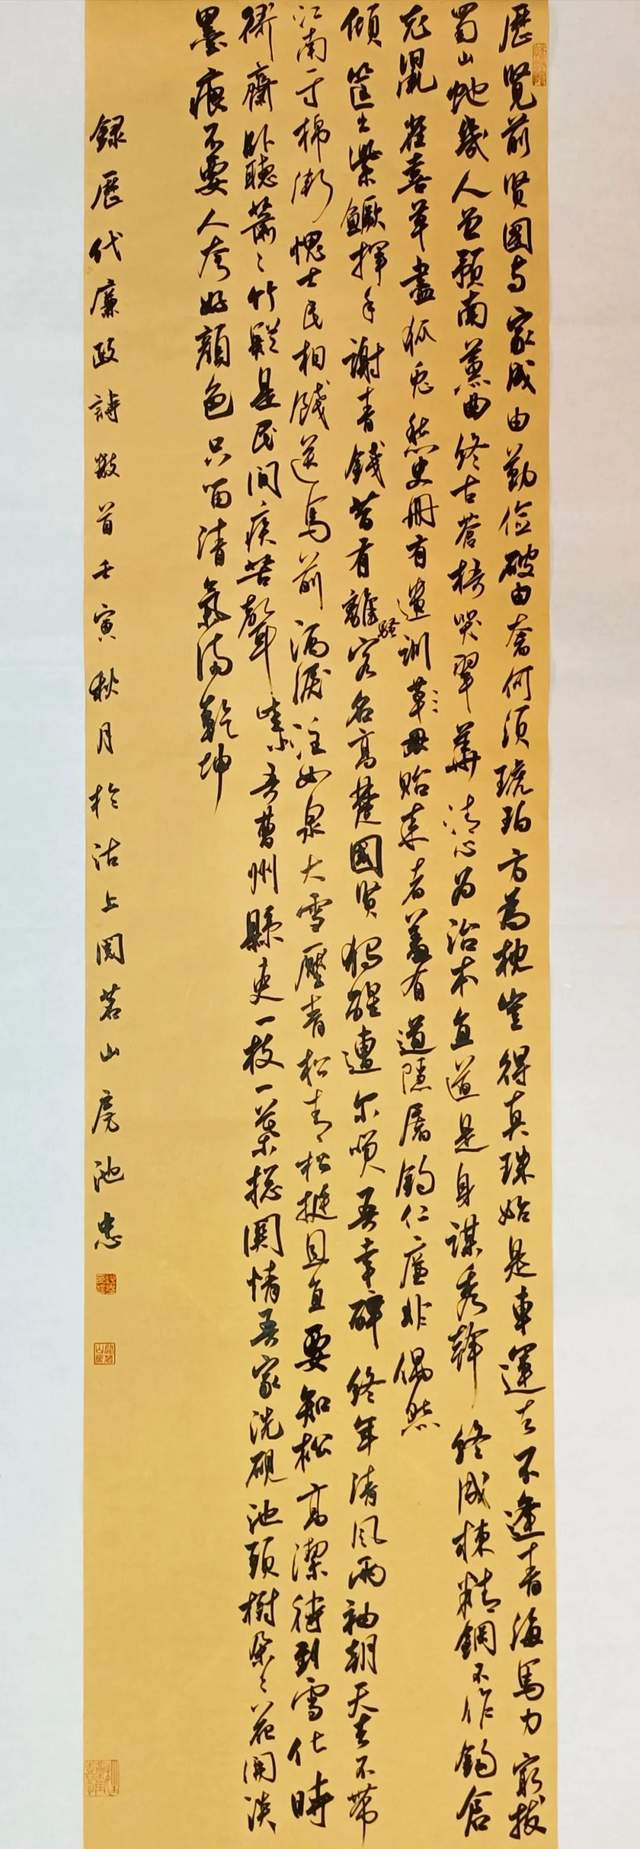 歷覽前賢國與家成由勤儉破由奢何須琥珀方為枕豈得真珠始是車運去不逢青海馬力窮拔
蜀山蛇幾人曾預南薰曲終古蒼梧哭翠華清心為治本直道是身謀秀幹終成棟精鋼不作鉤倉
充鼠雀喜草盡狐兔愁史冊有遺訓草毋貽來者羞有道隱屠釣仁廉非偶然
傾筐出紫鱖揮手謝青錢昔有離騷客名高楚國賢獨醒遭爾嘆吾幸醉終年清風兩袖朝天去不帶
江南一寸棉慚愧士民相餞送馬前灑淚注如泉大雪壓青松青松挺且直要知松高潔待到雪化時
衙齋臥聽蕭〻竹疑是民間疾苦聲些小吾曹州縣吏一枝一葉總關情吾家洗硯池頭樹朵〻花開淡
墨痕不要人夸好顏色只留清氣滿乾坤
錄歷代廉政詩數首壬寅秋月於沽上茗山房池忠